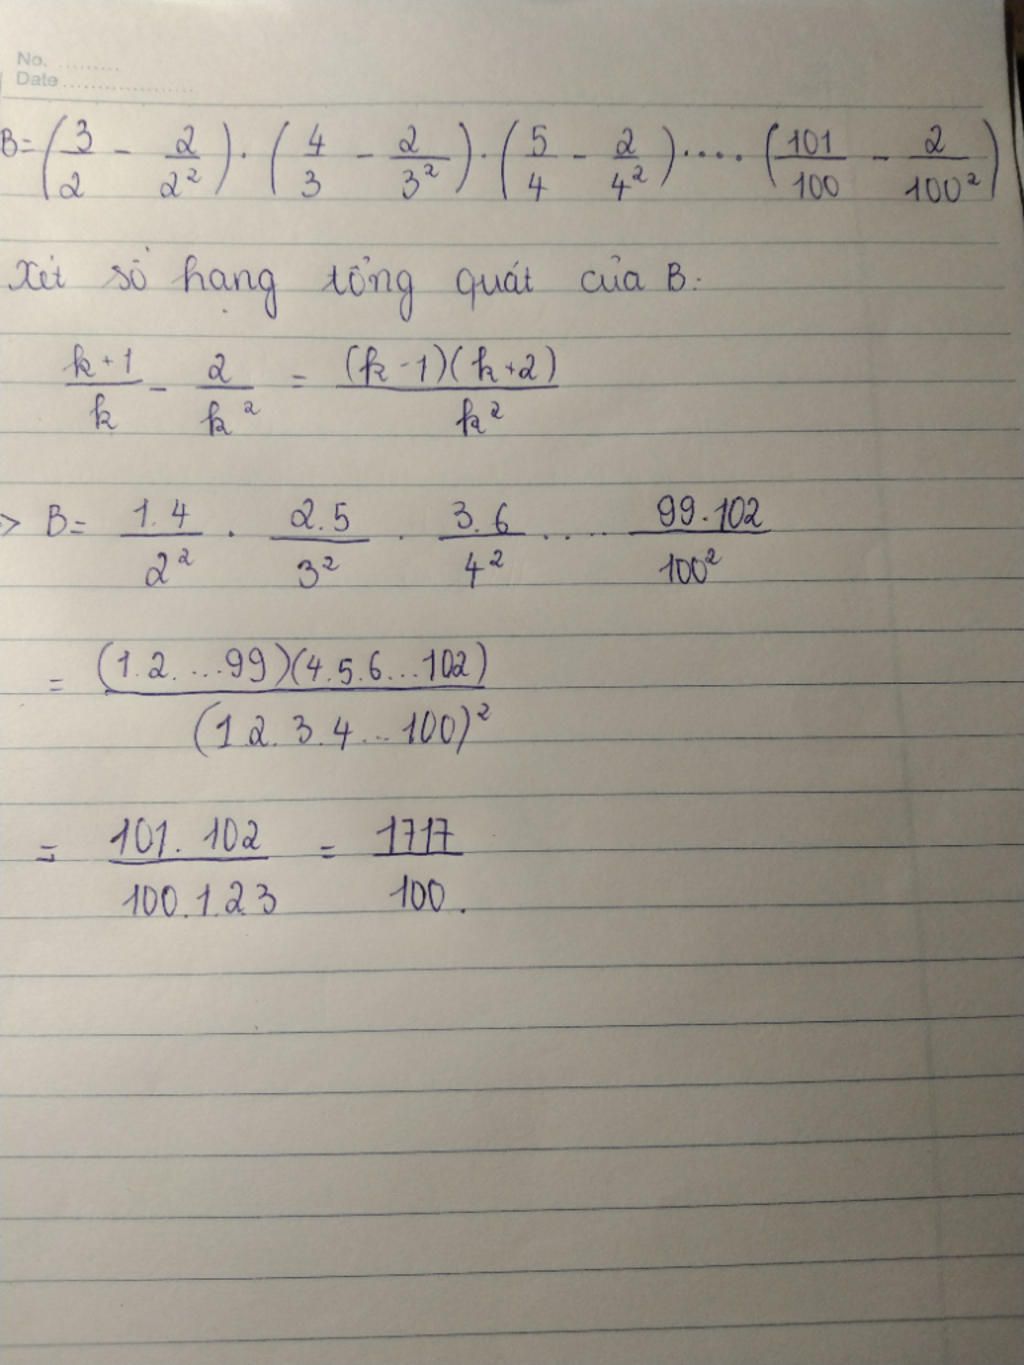 No. .........
Date ..................
B = (3/2 - 2/2²) . (4/3 - 2/3²) . (5/4 - 2/4²) .... (101/100 - 2/100²)
Xét số hạng tổng quát của B:
k+1/k - 2/k² = (k-1)(k+2)/k²
=> B = 1.4/2² . 2.5/3² . 3.6/4² .... 99.102/100²
= (1.2. ...99)(4.5.6...102)/(1.2.3.4...100)²
= 101.102/100.1.2.3 = 1717/100.